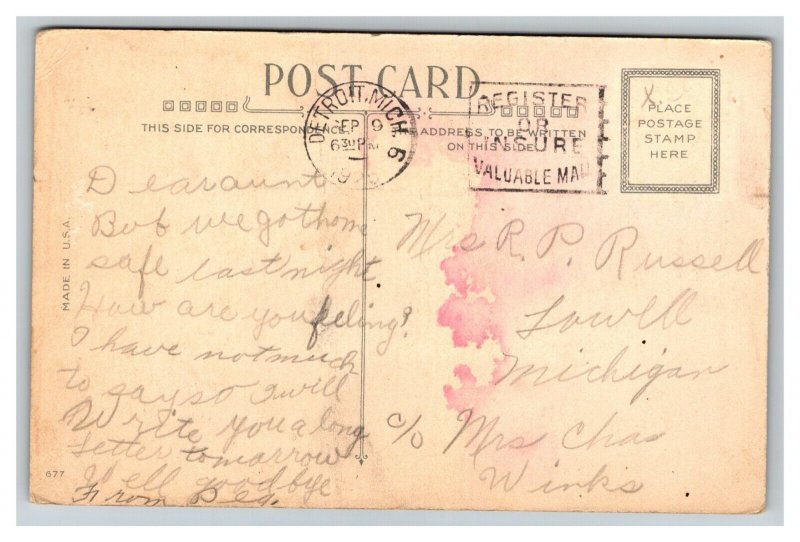 POST CARD
THIS SIDE FOR CORRESPONDENCE
ADDRESS TO BE WRITTEN
ON THIS SIDE
DETROIT, MICH. 6
SEP 9
630 PM
REGISTER
OR
INSURE
VALUABLE MAIL
PLACE
POSTAGE
STAMP
HERE
MADE IN U.S.A.
677
Dear aunt
Bob we got home
safe last night
How are you feeling?
I have not much
to say so I will
Write you a long
letter tomorrow
Well good bye
From Peg.
Mrs R. P. Russell
Lowell
Michigan
c/o Mrs Chas
Winks